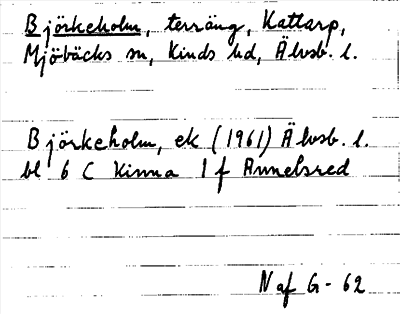 Björkeholm, terräng, Kattarp,
Mjöbäcks sn, Kinds hd, Älvsb. l.
Björkeholm, ek (1961) Älvsb. l.
bl 6 C Kinna 1 f Annelsred
N af G - 62